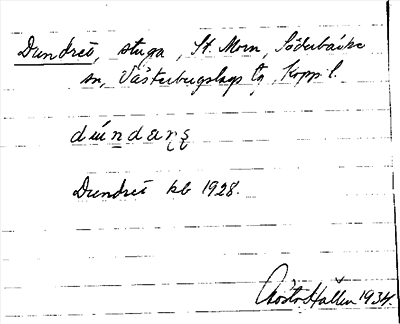 Dundret, stuga, St. Morn, Söderbärke
sn, Västerbergslags tg, Kopp. l.
dúndarṣ
Dundret kb 1928.
Gösta Hallen 1934.